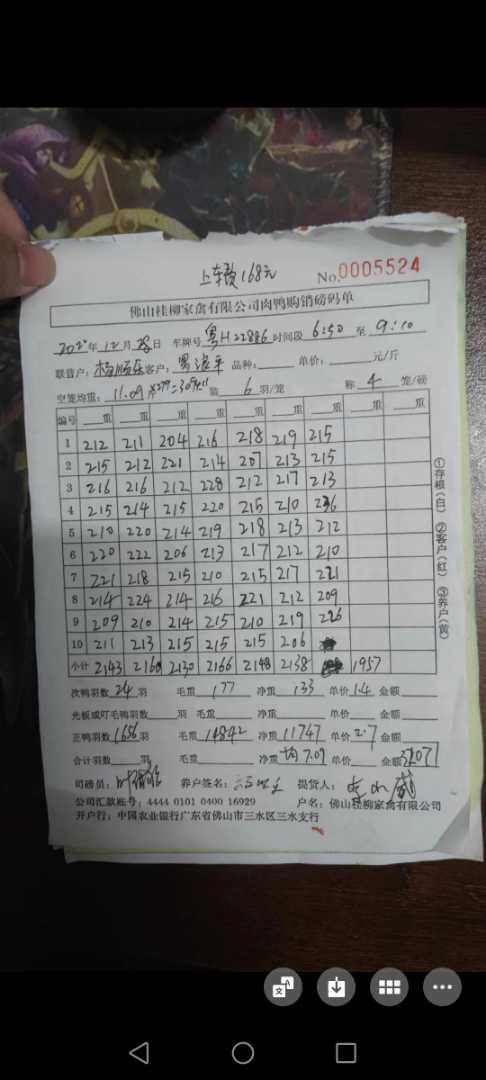 上车费168元
No.0005524
佛山桂柳家禽有限公司肉鸭购销磅码单
年12月28日 车牌号 粤H22886 时间段 6:50 至 9:10
联营户: 客户: 品种: 单价: 元/斤
空笼均重: 11.09 装 6 羽/笼 称 4 笼/磅
编号 重 重 重 重 重 重 重 重 重
1 212 211 204 216 218 219 215
2 215 212 221 214 207 213 215
3 216 216 212 228 212 217 213
4 215 214 215 220 215 210 236
5 210 220 214 219 218 213 212
6 220 222 206 213 217 212 210
7 221 218 215 210 215 217 221
8 214 224 214 216 221 212 209
9 209 210 214 215 210 219 226
10 211 213 215 215 215 206
小计 2143 2160 2130 2166 2148 2138 1957
①存根(白) ②客户(红) ③养户(黄)
次鸭羽数 24 羽 毛重 177 净重 133 单价 1.4 金额
光板或叮毛鸭羽数 羽 毛重 净重 单价 金额
正鸭羽数 1656 羽 毛重 14842 净重 11747 单价 2.7 金额
合计羽数 羽 毛重 净重 均7.09 单价 金额
司磅员: 养户签名: 提货人:
公司汇款账号: 4444 0101 0400 16929 户名: 佛山桂柳家禽有限公司
开户行: 中国农业银行广东省佛山市三水区三水支行